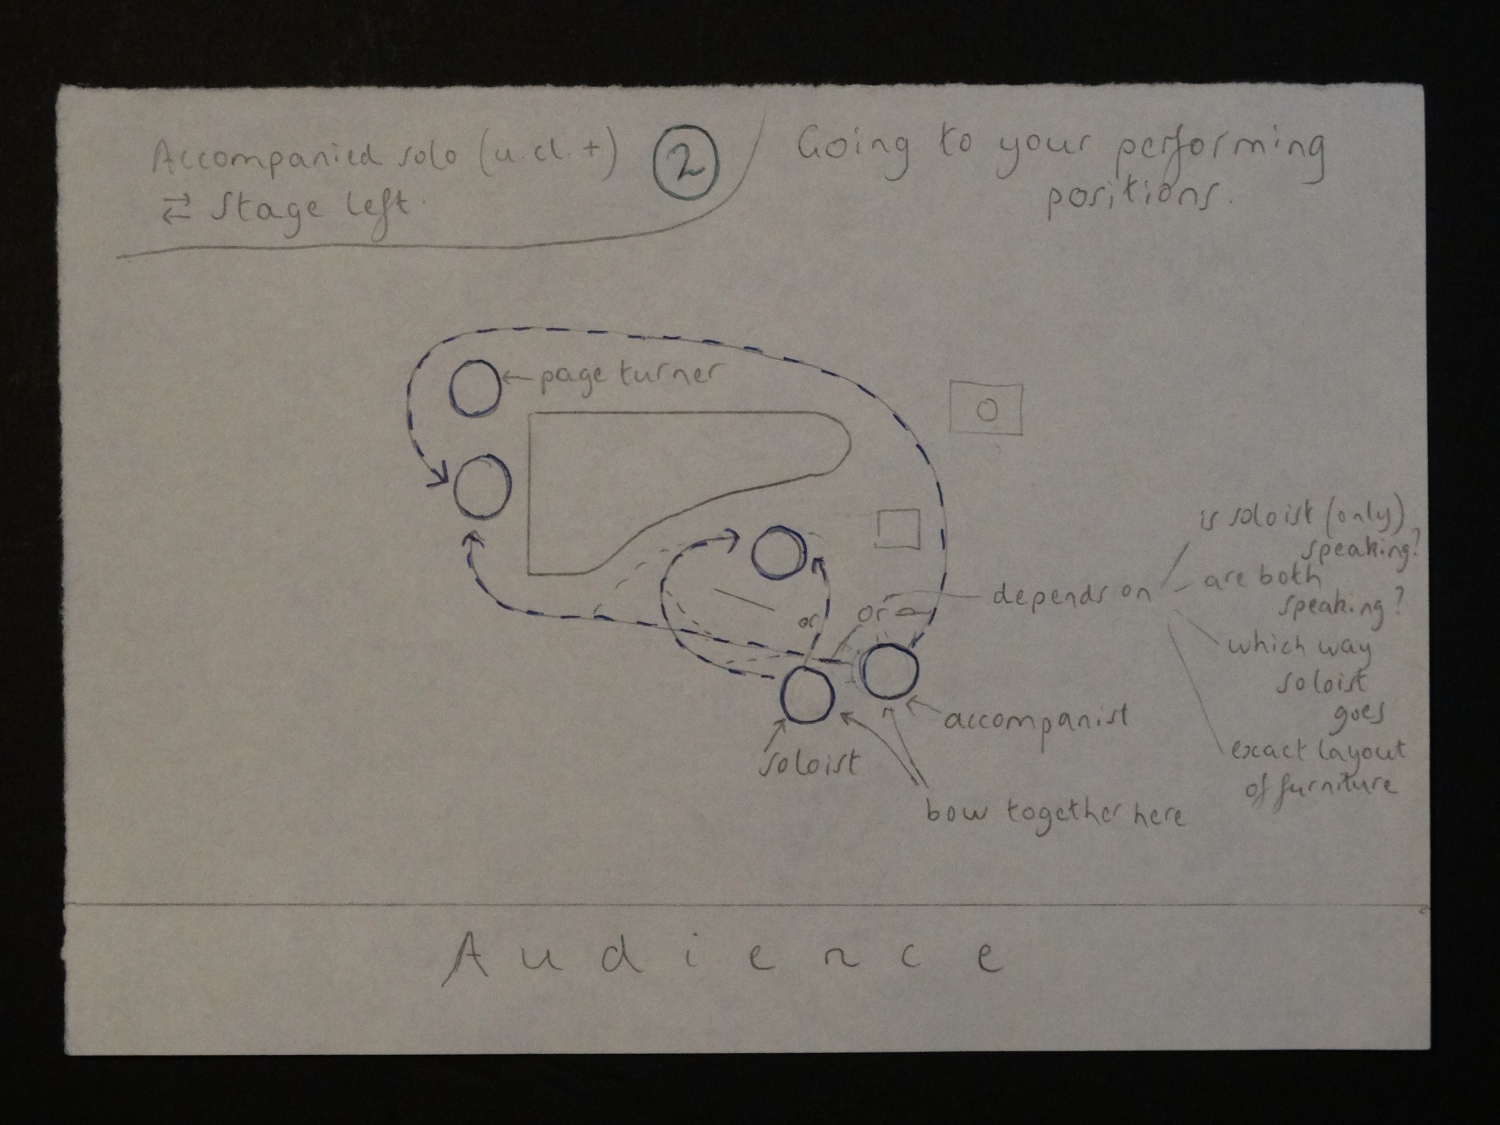 Accompanied solo (u.cl.+)
⇄ Stage left.
2
Going to your performing
positions.
page turner
is soloist (only)
speaking?
are both
speaking?
depends on
or
or
which way
soloist
goes
accompanist
soloist
exact layout
of furniture
bow together here
Audience